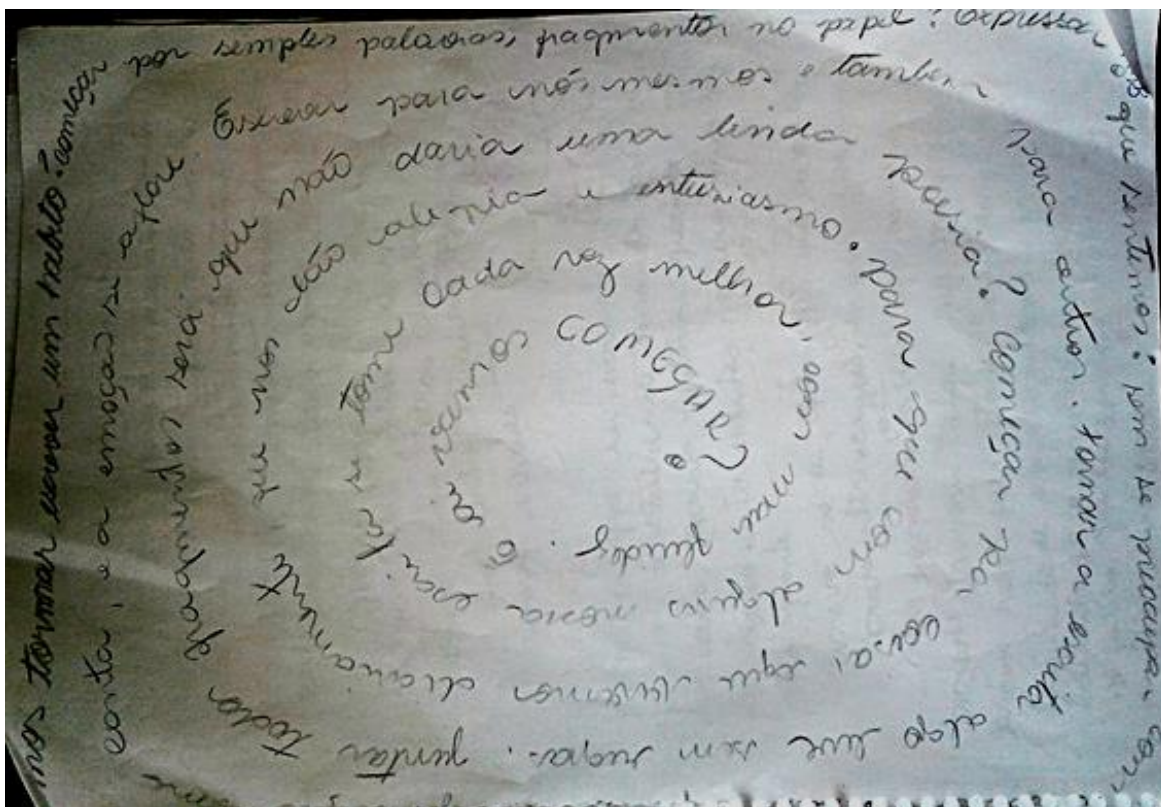 mos tornar escrever um hábito? começar por simples palavras, fragmentos no papel? Expressar o que sentimos? sem se preocupar com
conta, e a emoção se aflore Escrever para nós mesmos e também para outros. tornar a escrita algo leve sem regras. juntar todos
fragmentos será que não daria uma linda poesia? Começar por coisas que vivemos diariamente, que nos dão alegria e entusiasmo. para que com
nossa escrita se torne cada vez melhor, com mais fluidez. E aí vamos COMEÇAR?